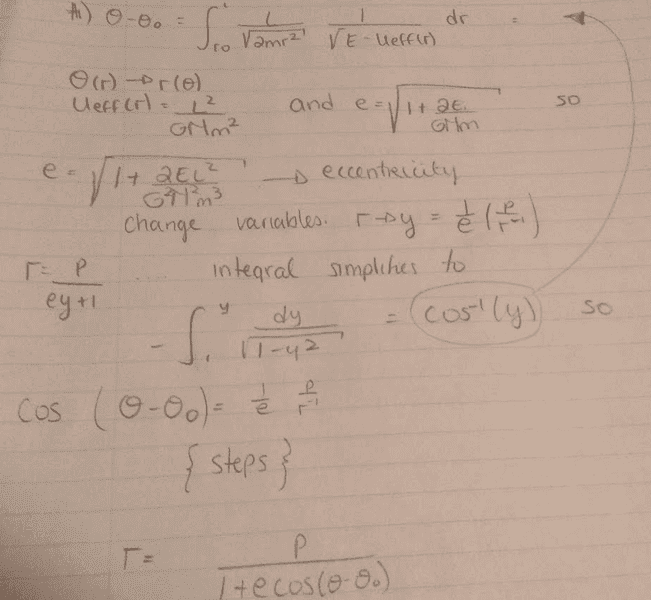 A) θ-θ₀ = ∫ᵣ₀ʳ L/√2mr² 1/√E-Ueff(r) dr =
θ(r) → r(θ)
Ueff(r) = L²/GMm² and e = √1 + 2E/GMm so
e = √1 + 2EL²/G²M²m³ → eccentricity
change variables. r→y = 1/e (p/r-1)
r = p/ey+1 .... integral simplifies to
- ∫₁ʸ dy/√1-y² = cos⁻¹(y) so
cos (θ-θ₀) = 1/e p/r-1
{ steps }
r = p/1+ecos(θ-θ₀)